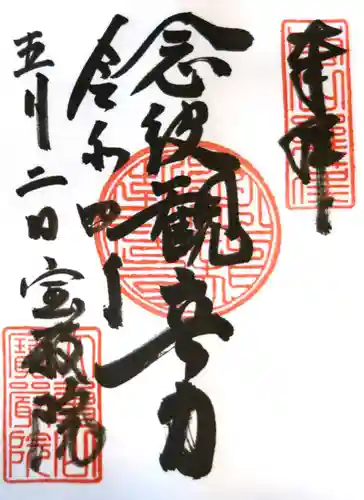 奉拝
念彼観音力
令和四年
五月二日
宝蔵院